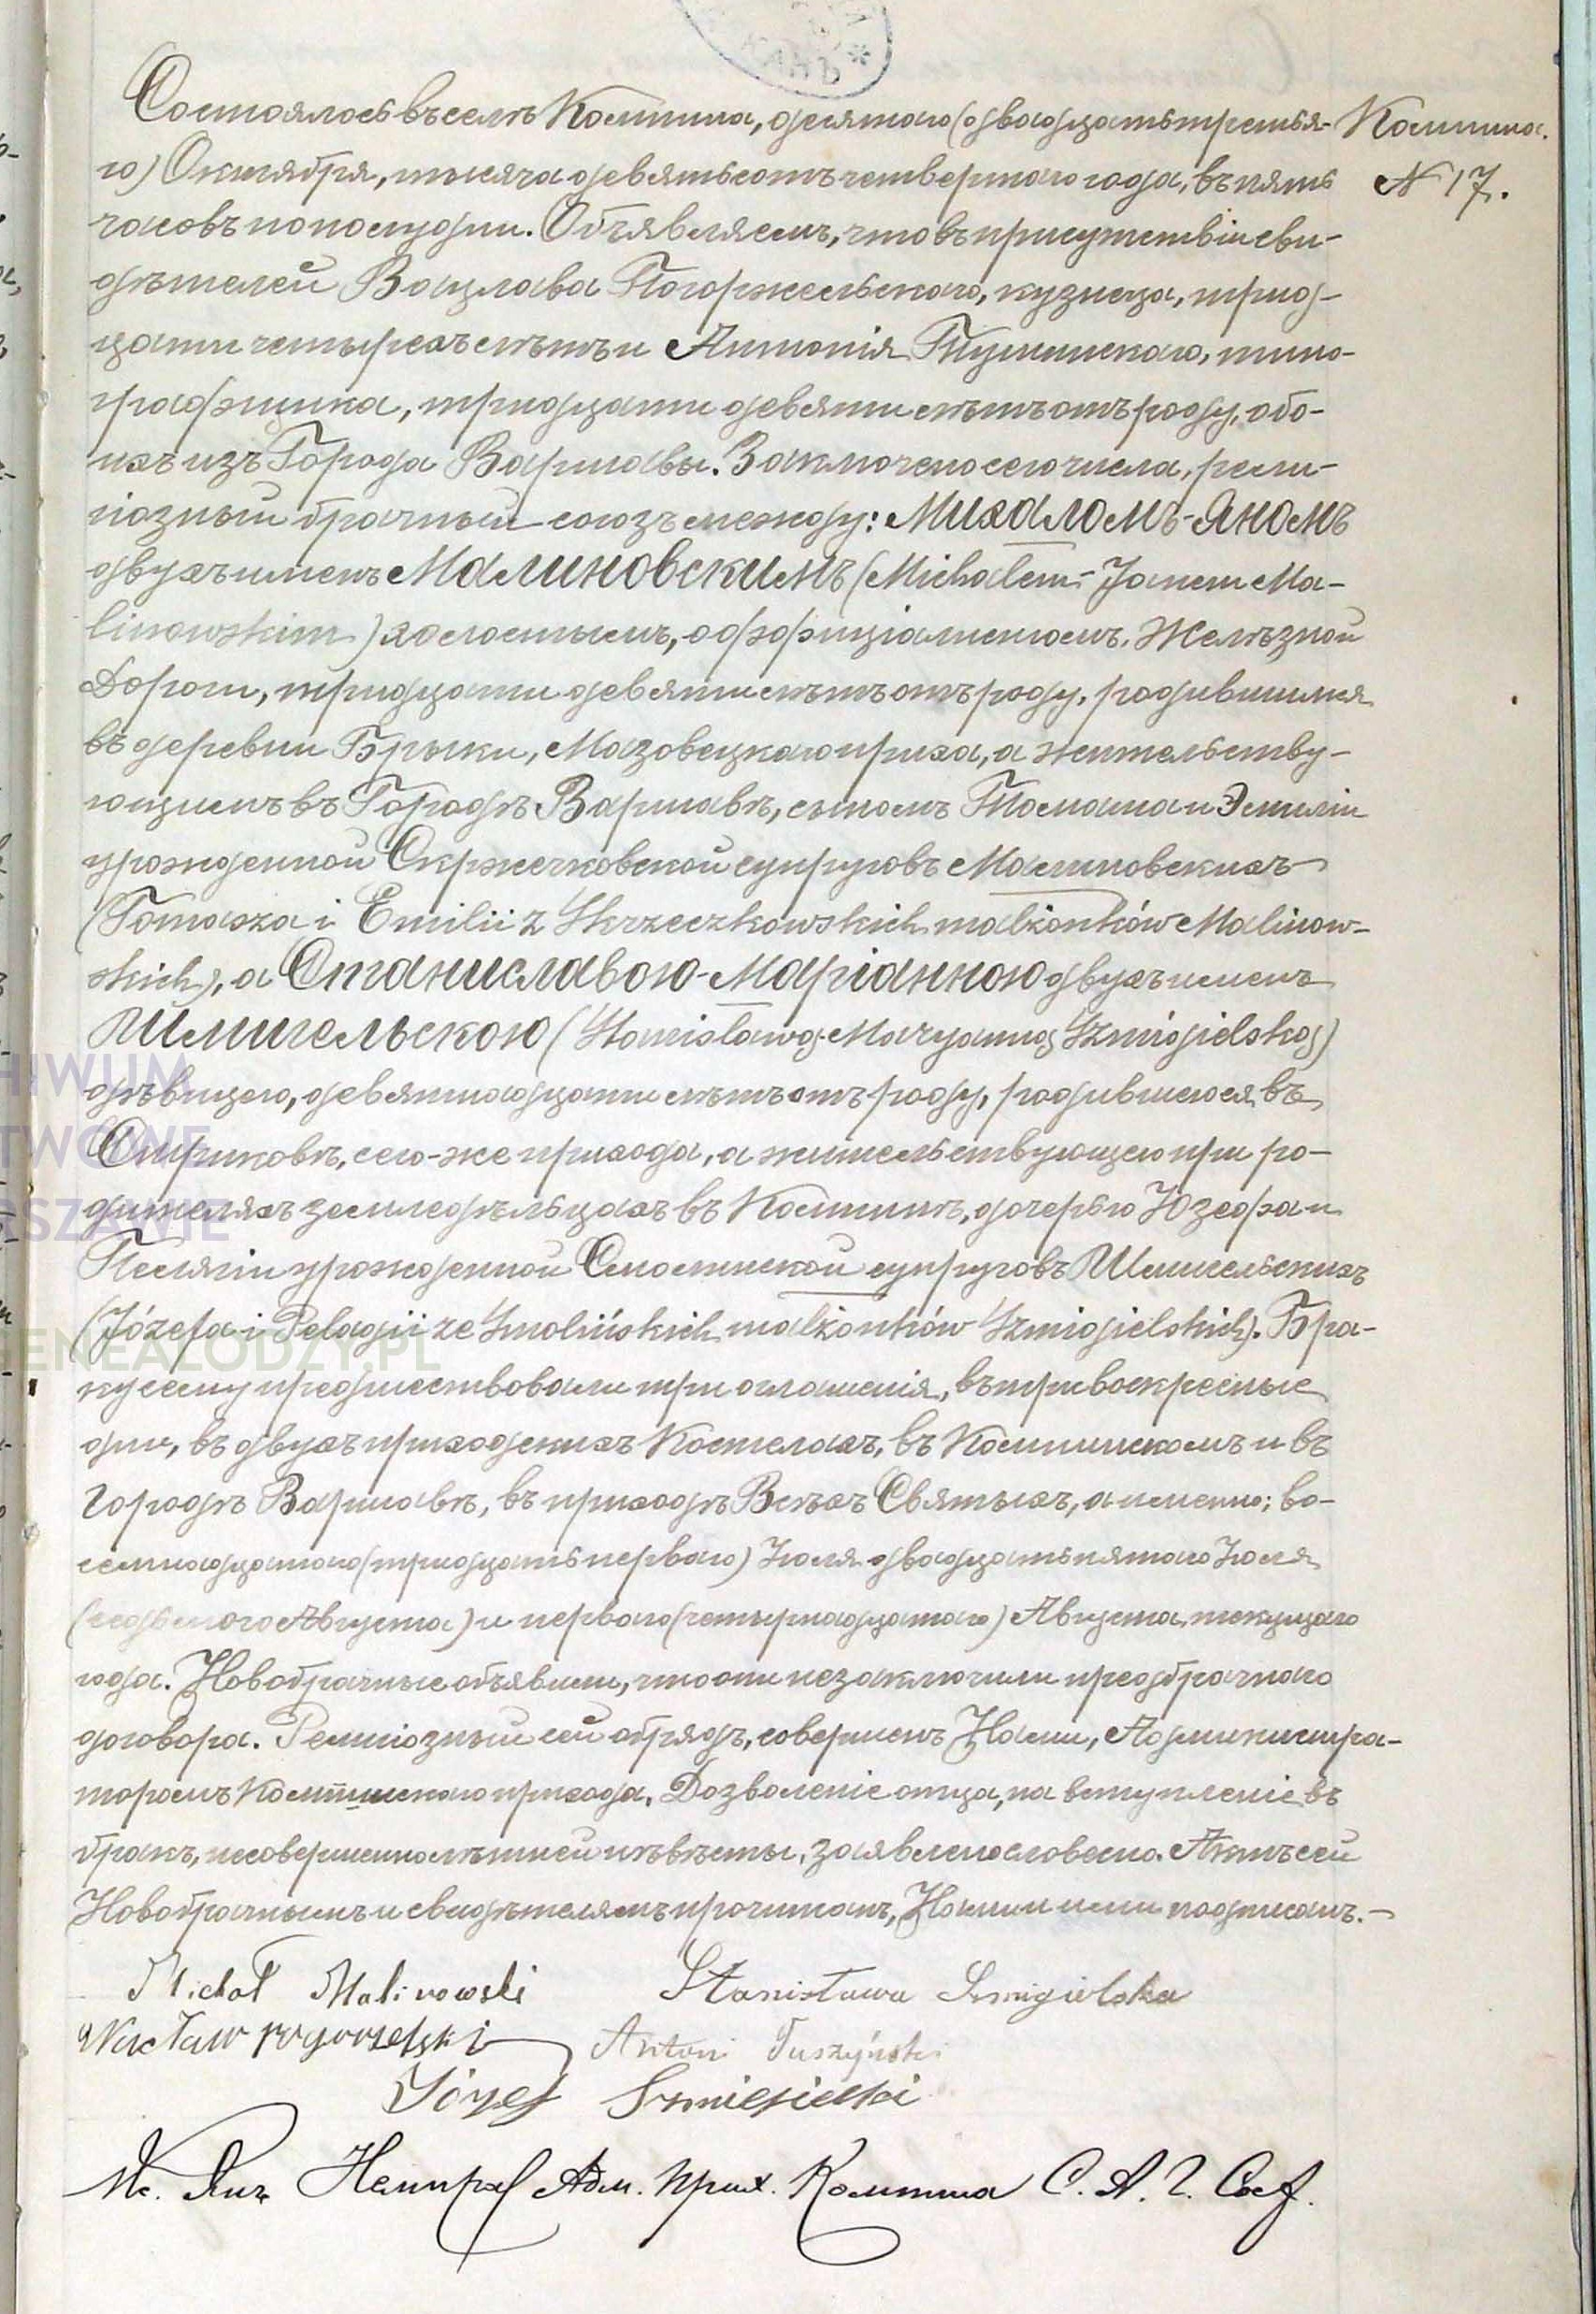 Состоялось въ селѣ Комтина, десятаго (двадцать третья-
го) Октября, тысяча девятьсотъ четвертаго года, въ пять
часовъ по полудни. Объявляемъ, что въ присутствіи сви-
дѣтелей Вацлава Погоржельскаго, кузнеца, трид-
цати четырехъ лѣтъ и Антонія Тушинскаго, типо-
графщика, тридцати девяти лѣтъ отъ роду, обо-
ихъ изъ Города Варшавы. Заключенъ сего числа, рели-
гіозный брачный союзъ между: Михаломъ-Яномъ
двухъ именъ Малиновскимъ (Michałem-Janem Ma-
linowskim) холостымъ, оффиціалистомъ Желѣзной
Дороги, тридцати девяти лѣтъ отъ роду, родившимся
въ деревни Брыки, Мазовецкаго прихода, а жительству-
ющимъ въ Городѣ Варшавѣ, сыномъ Томаша и Эмиліи
урожденной Скржечковской супруговъ Малиновскихъ
(Tomasza i Emilii z Skrzeczkowskich małżonków Malinow-
skich), а Станиславою-Маріанною двухъ именъ
Шмигельскою (Stanisławą-Maryanną Szmigielską)
дѣвицею, девятнадцати лѣтъ отъ роду, родившеюся въ
сего-же прихода, а жительствующею при ро-
дителяхъ земледѣльцахъ въ Комтинѣ, дочерью Юзефа и
Пелягіи урожденной Смолинской супруговъ Шмигельскихъ
(Józefa i Pelagii ze Smolińskich małżonków Szmigielskich). Бра-
ку сему предшествовали три оглашенія, въ три воскресные
дни, въ двухъ приходскихъ Костелахъ, въ Комтинскомъ и въ
Городѣ Варшавѣ, въ приходѣ Всѣхъ Святыхъ, а именно; во-
семнадцатаго (тридцать перваго) Іюля двадцать пятаго Іюля
(седьмого Августа) и перваго (четырнадцатаго) Августа, текущаго
года. Новобрачные объявили, что они не заключили предбрачнаго
договора. Религіозный сей обрядъ, совершенъ Нами, Администра-
торомъ Комтинскаго прихода. Дозволеніе отца, на вступленіе въ
бракъ, несовершеннолѣтней невѣсты, заявлено словесно. Актъ сей
Новобрачнымъ и свидѣтелямъ прочитанъ, Нами и ими подписанъ.—
Комтина.
№ 17.
Michał Malinowski Stanisława Szmigielska
Wacław Pogorzelski Antoni Tuszyński
Józef Szmigielski
Кс. Янъ Адм. Прих. Комтина С. А. Г. Сост.
ENEALODZY.PL